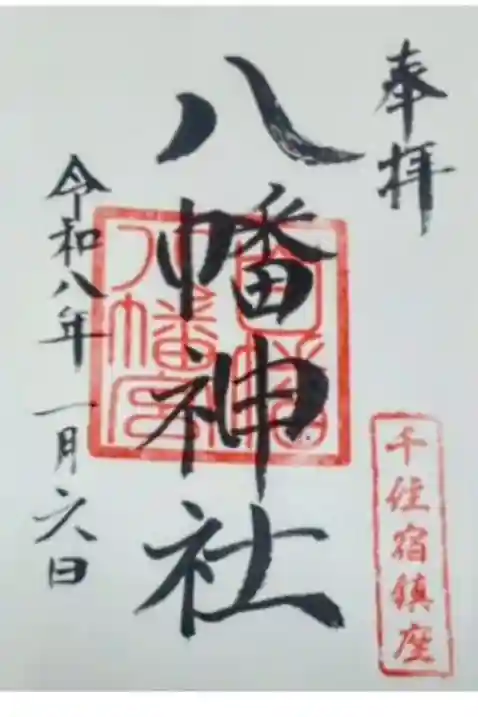 奉拝
千住宿鎮座
八幡神社
八幡宮
令和八年一月六日